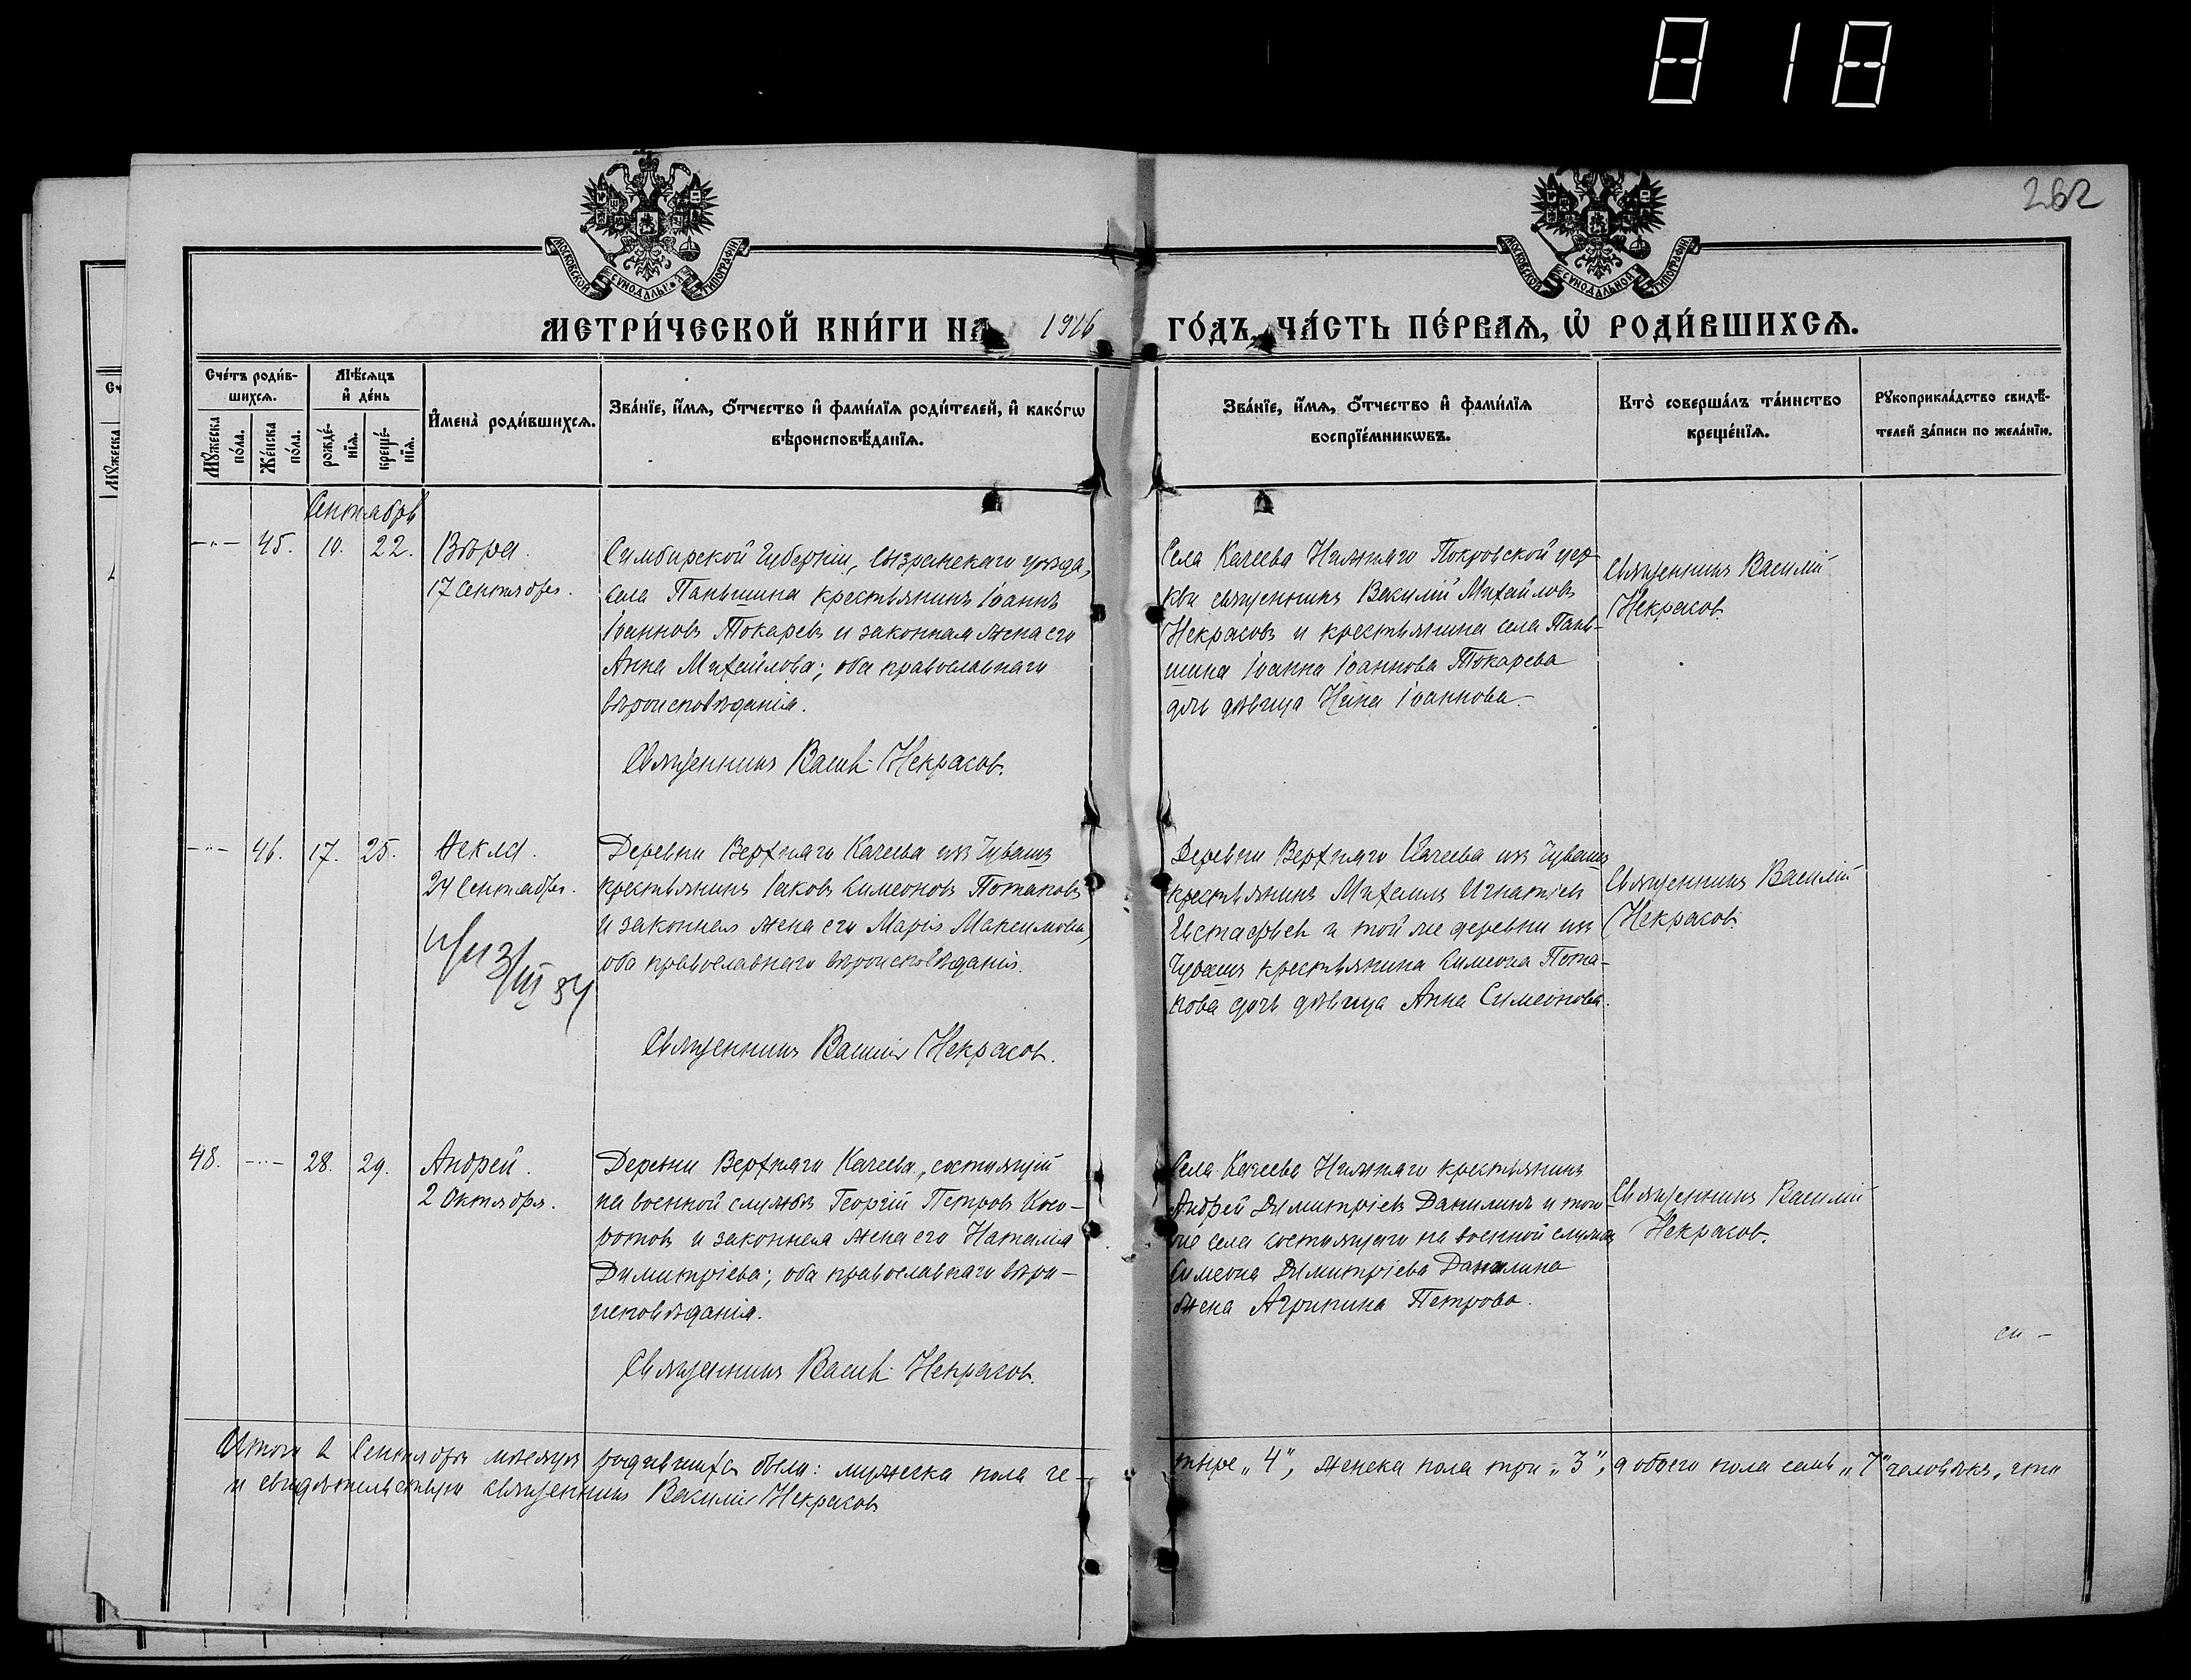 818
262
МОСКОВСКОЙ СУНОДАЛЬНОЙ ТИПОГРАФІИ
МОСКОВСКОЙ СУНОДАЛЬНОЙ ТИПОГРАФІИ
МЕТРИ́ЧЕСКОЙ КНИ́ГИ НА 1916 ГО́ДЪ, ЧА́СТЬ ПЕ́РВАЯ, Ѡ РОДИ́ВШИХСЯ.
Сче́тъ роди́в-
шихся.
Мꙋ́жеска
по́ла.
Же́нска
по́ла.
Мѣ́сяцъ
и҆ де́нь
рожде́-
нїя.
креще́-
нїя.
И҆мена̀ роди́вшихся.
Зва́нїе, и҆́мя, ѻ҆́тчество и҆ фами́лїя роди́телей, и҆ како́гѡ
вѣроисповѣ́данїя.
Зва́нїе, и҆́мя, ѻ҆́тчество и҆ фами́лїя
воспрїе́мникѡвъ.
Кто̀ соверша́лъ та́инство
креще́нїя.
Рꙋкоприкла́дство свидѣ́-
телей за́писи по жела́нїю.
Сентябрь
-"- 45. 10. 22. Вѣра.
17 Сентября.
Симбирской Губерніи, Сызранскаго уѣзда,
села Паньшина крестьянинъ Іоаннъ
Іоанновъ Токаревъ и законная жена его
Анна Михайлова; оба православнаго
вѣроисповѣданія.
Священникъ Васил. Некрасов.
Села Качеева Нижняго Покровской цер-
кви священникъ Василій Михайловъ
Некрасовъ и крестьянина села Пань-
шина Іоанна Іоаннова Токарева
дочь дѣвица Нина Іоаннова.
Священникъ Василій
Некрасов.
-"- 46. 17. 25. Ѳекла.
24 Сентября.
3/III 34
Деревни Верхняго Качеева изъ Чувашъ
крестьянинъ Іаковъ Симеоновъ Потаповъ
и законная жена его Марія Максимова,
оба православнаго вѣроисповѣданія.
Священникъ Василій Некрасов.
Деревни Верхняго Качеева изъ Чувашъ
крестьянинъ Михаилъ Игнатіев
Евстафьев и той же деревни изъ
Чувашъ крестьянина Симеона Пота-
пова дочь дѣвица Анна Симеонова.
Священникъ Василій
Некрасов.
48. -"- 28. 29. Андрей.
2 Октября.
Деревни Верхняго Качеева, состоящій
на военной службѣ Георгій Петровъ Косо-
ротовъ и законная жена его Наталія
Димитріева; оба православнаго вѣро-
исповѣданія.
Священникъ Васил. Некрасов.
Села Качеева Нижняго крестьянинъ
Андрей Димитріевъ Данилинъ и того-
же села состоящаго на военной службѣ
Симеона Димитріева Данилина
жена Агрипина Петрова.
Священникъ Василій
Некрасов.
Итого в Сентябрѣ мѣсяцѣ родившихся было: мужеска пола че-
тыре „4", женска пола три „3", а обоего пола семь „7" человѣкъ, что
и свидѣтельствую священникъ Василій Некрасовъ